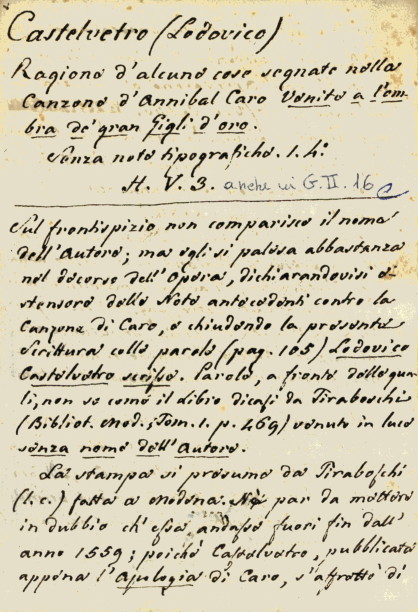 Castelvetro (Lodovico)
Ragione d'alcune cose segnate nella
Canzone d'Annibal Caro Venite a l'om-
bra de' gran Gigli d'oro.
Senza note tipografiche. 1. 4.°
H. V. 3. anche in G. II. 16
Sul frontispizio non comparisce il nome
dell'Autore; ma egli si palesa abbastanza
nel decorso dell'Opera, dichiarandovisi e-
stensore delle Note antecedenti contro la
Canzone di Caro, e chiudendo la presente
Scrittura colle parole (pag. 105) Lodovico
Castelvetro scrisse. Parole, a fronte delle qua-
li, non so come il libro dicasi da Tiraboschi
(Bibliot. Mod.; Tom. 1. p. 469) venuto in luce
senza nome dell'Autore.
La stampa si presume da Tiraboschi
(l. c.) fatta a Modena. Nè par da mettere
in dubbio ch'essa andasse fuori fin dall'
anno 1559; poichè Castelvetro, pubblicata
appena l'Apologia di Caro, s'affrettò di